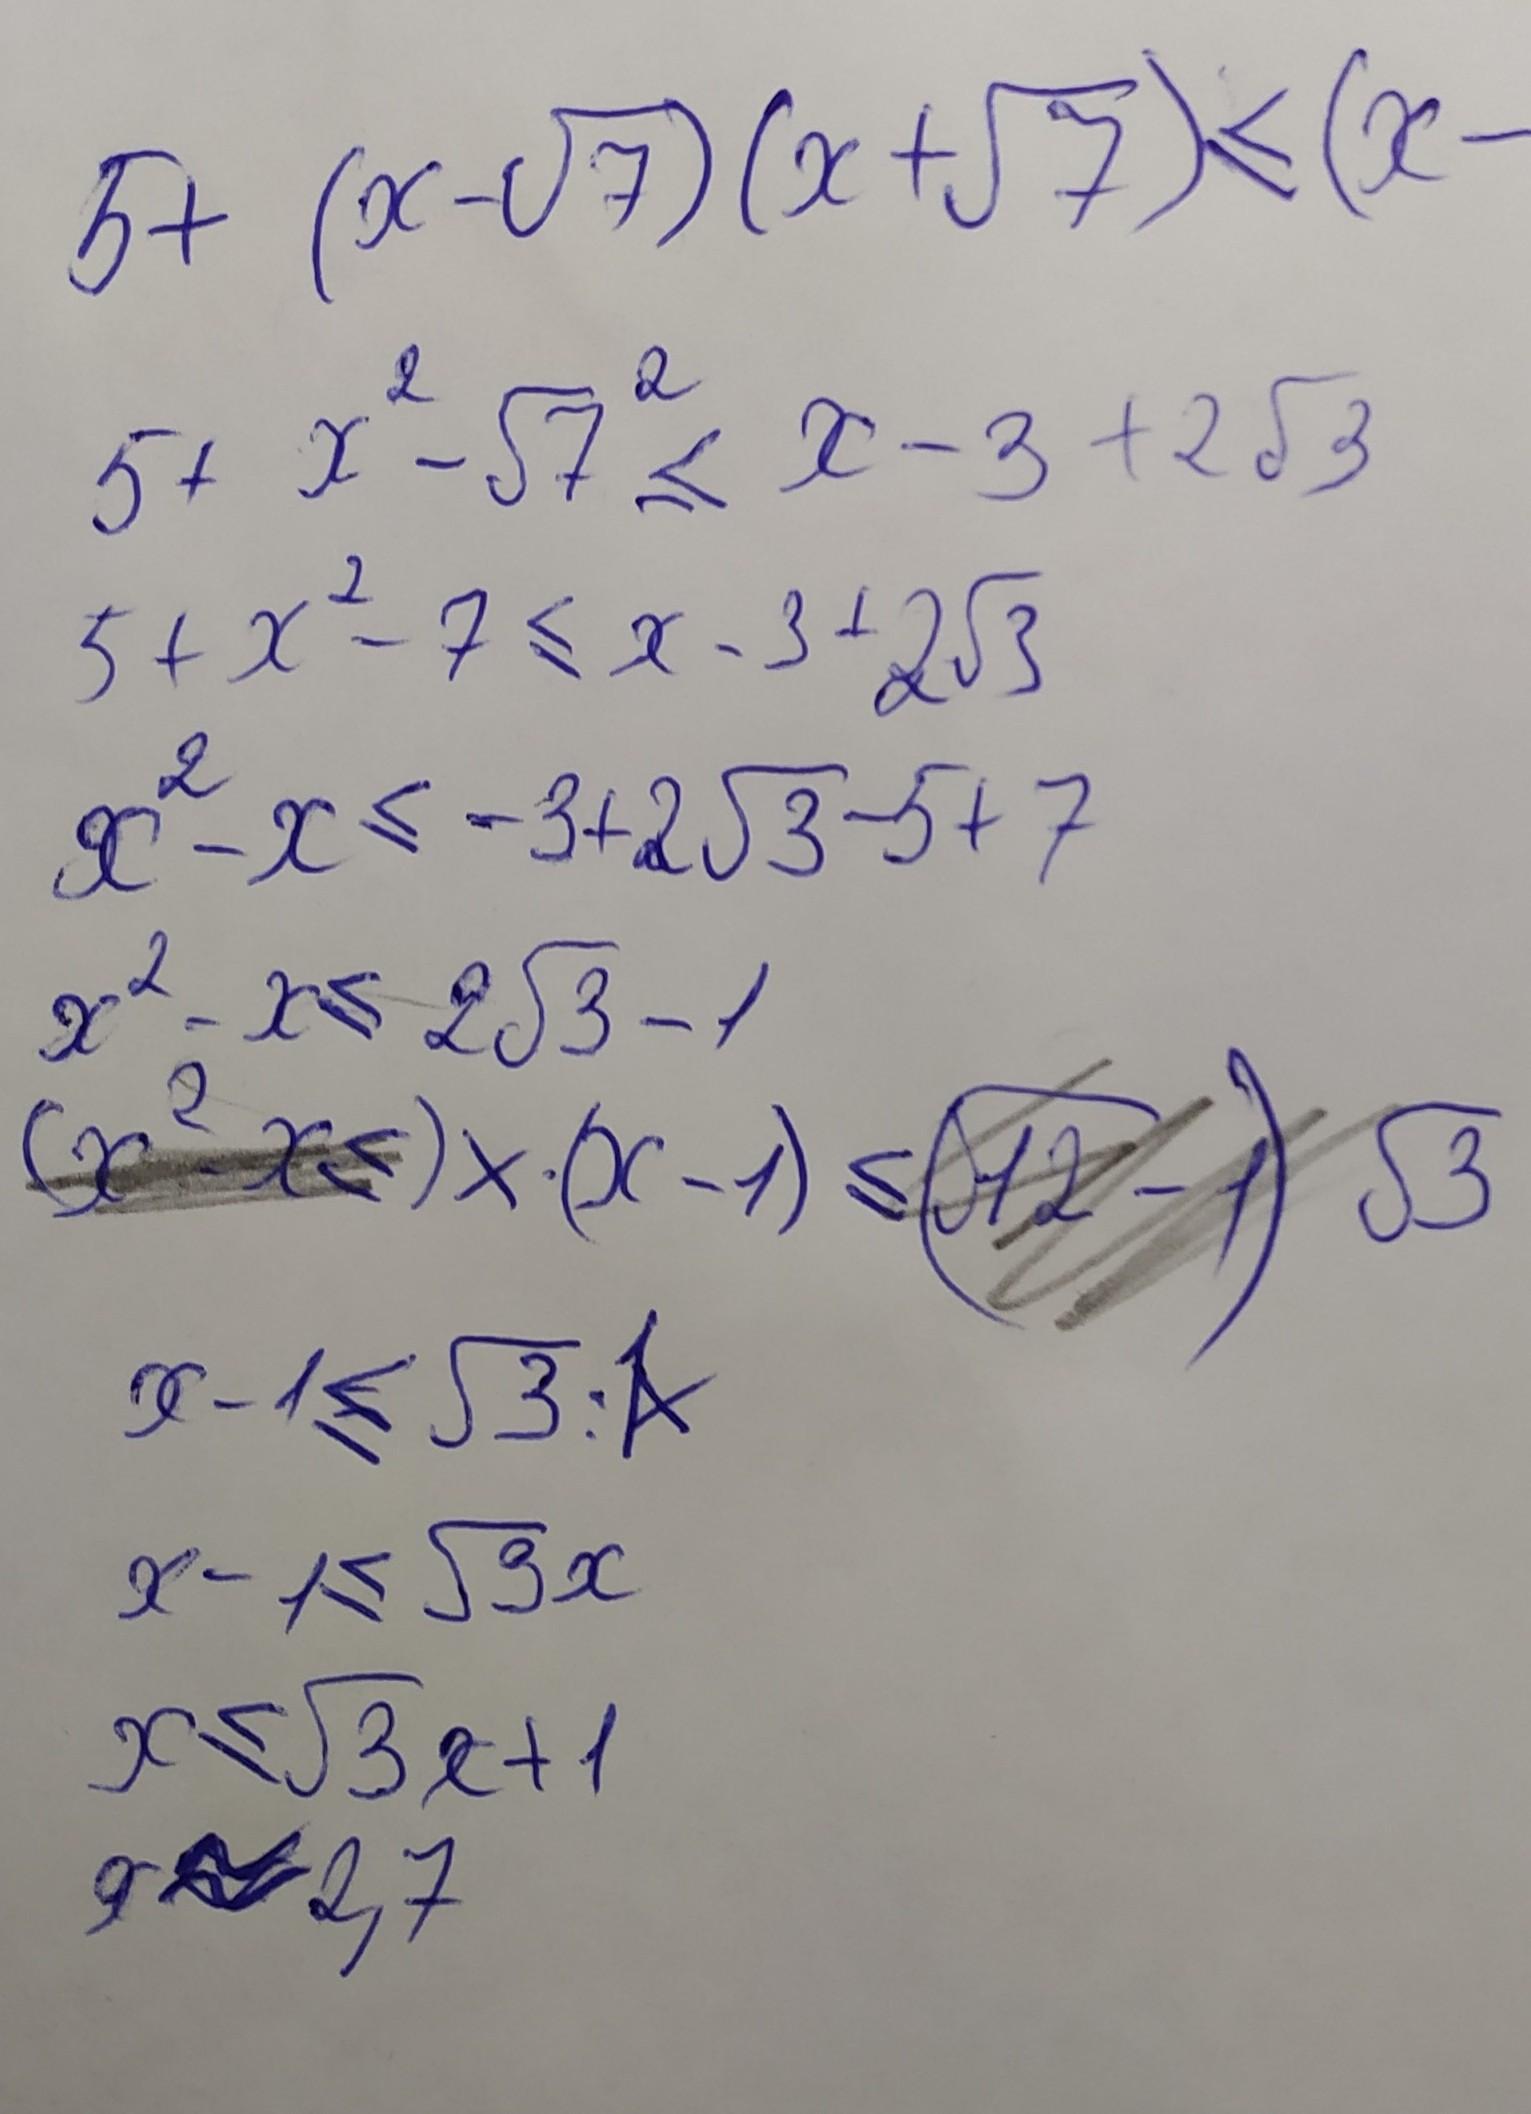 5+ (x-√7)(x+√7)≤(x-
5+ x²-√7² ≤ x-3+2√3
5+x²-7≤x-3+2√3
x²-x≤-3+2√3-5+7
x²-x≤2√3-1
(x²-x≤)x·(x-1)≤(√12-1) √3
x-1≤√3:
x-1≤√3x
x≤√3x+1
x≈2,7